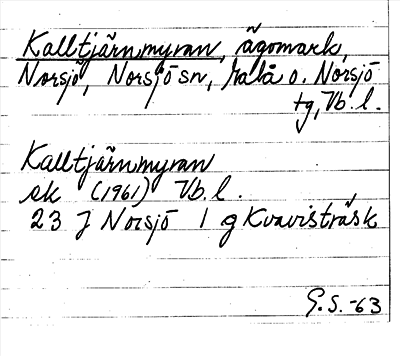 Kalltjärnmyran, ägomark,
Norsjö, Norsjö sn, Malå o. Norsjö
tg, Vb. l.
Kalltjärnmyran
ek (1961) Vb. l.
23 J Norsjö 1 g Kvavisträsk
G.S. -63